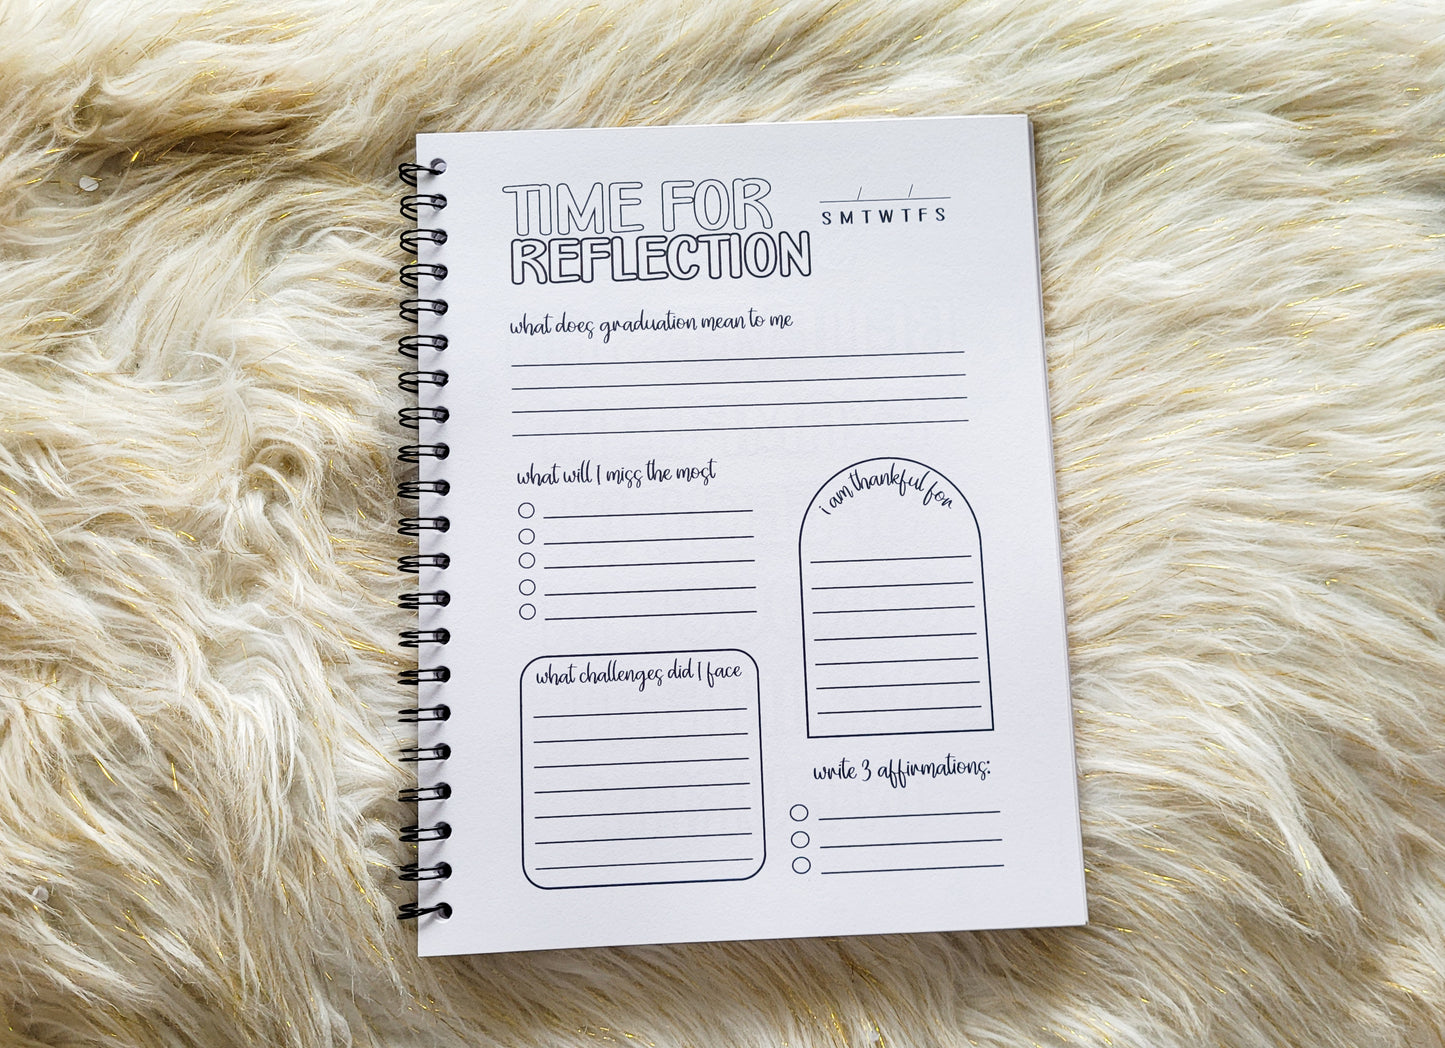 TIME FOR
REFLECTION
/ /
S M T W T F S
what does graduation mean to me
what will I miss the most
i am thankful for
what challenges did I face
write 3 affirmations: